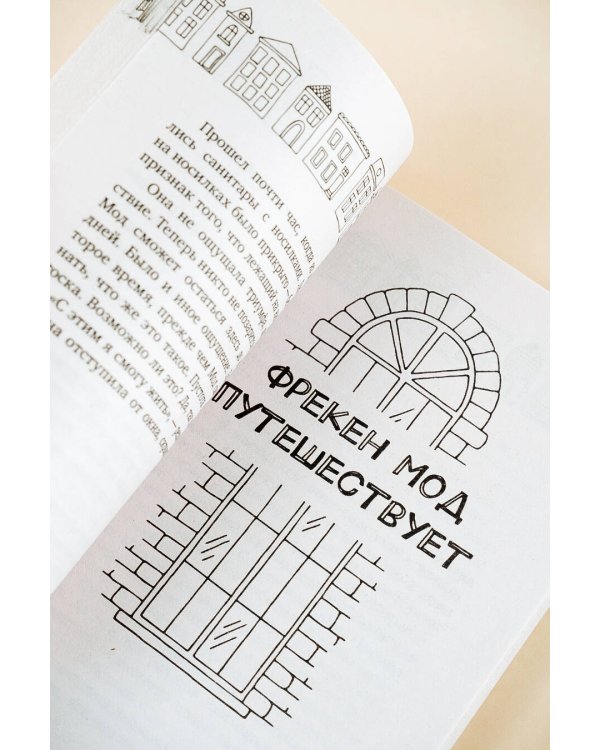 Прошел почти час, когда
лись санитары с носилками.
на носилках было прикрыто
признак того, что лежащий
Она не ощущала триумфа,
ствие. Теперь никто не
Мод сможет остаться здесь
дней. Было и иное ощущение
торое время, прежде чем
нать, что же это такое.
оска. Возможно ли это? Да,
«С этим я смогу жить» –
на отступила от окна
ФРЕКЕН МОД
ПУТЕШЕСТВУЕТ